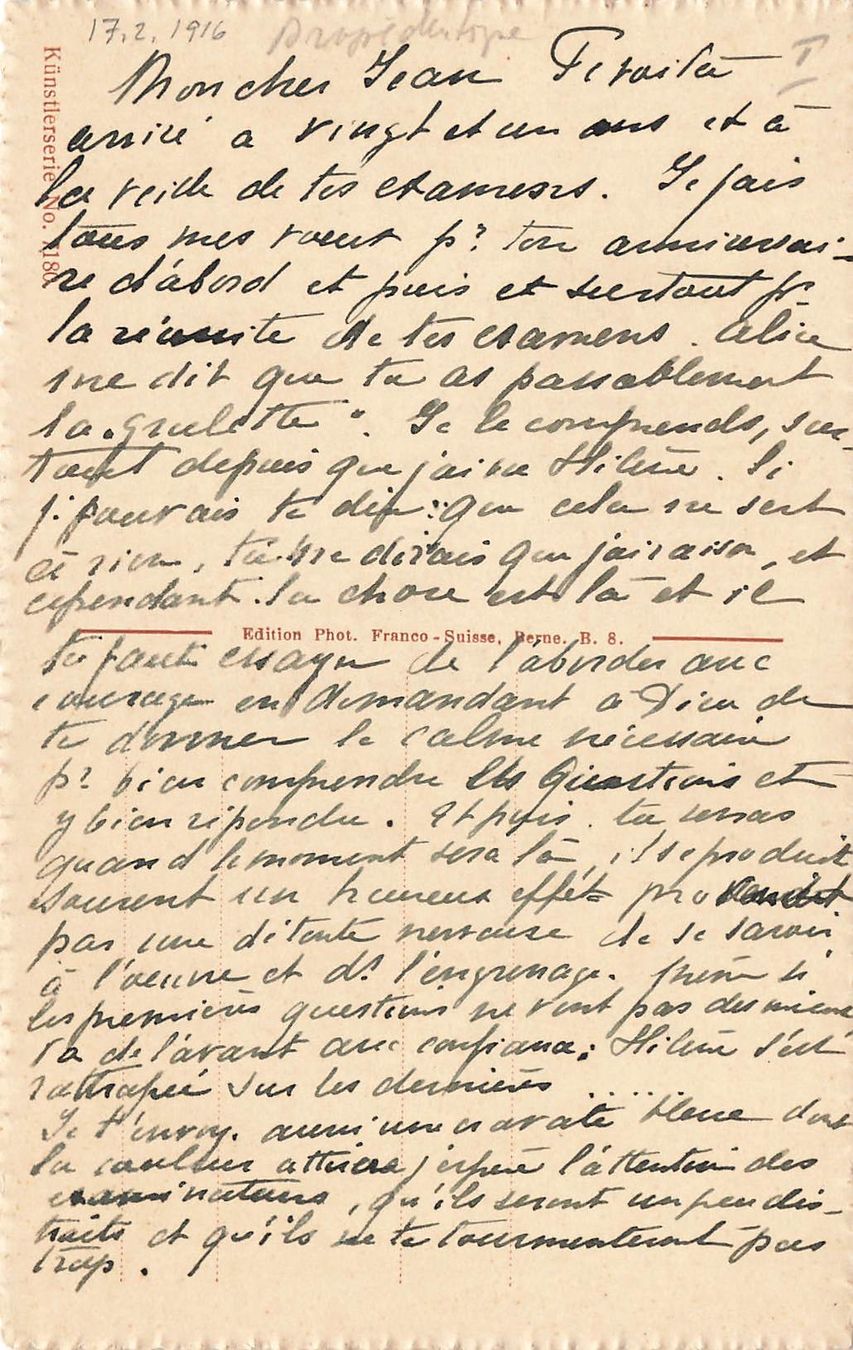 17.2.1916 Propédeutique
I
Mon cher Jean Te voilà
arrivé à vingt et un ans et à
la veille de tes examens. Je fais
tous mes vœux pr ton anniversai-
re d'abord et puis et surtout pr
la réussite de tes examens. Alice
me dit que tu as passablement
la "grulette". Je le comprends, sur-
tout depuis que j'ai vu Hélène. Si
je pouvais te dire: que cela ne sert
à rien, tu me dirais que j'ai raison, et
cependant la chose est là et il
Künstlerserie No.
Edition Phot. Franco-Suisse, Berne. B. 8.
te faut essayer de l'aborder avec
courage en demandant à Dieu de
te donner le calme nécessaire
pr bien comprendre les questions et
y bien répondre. Et puis tu verras
quand le moment sera là, il se produit
souvent un heureux effet
par une détente nerveuse de se savoir
à l'œuvre et ds l'engrenage. même si
les premières questions ne vont pas des mieux
va de l'avant avec confiance; Hélène s'est
rattrapée sur les dernières .....
Je t'envoye aussi une cravate bleue dont
la couleur attirera j'espère l'attention des
examinateurs, qu'ils seront un peu dis-
traits et qu'ils ne te tourmenteront pas
trop.